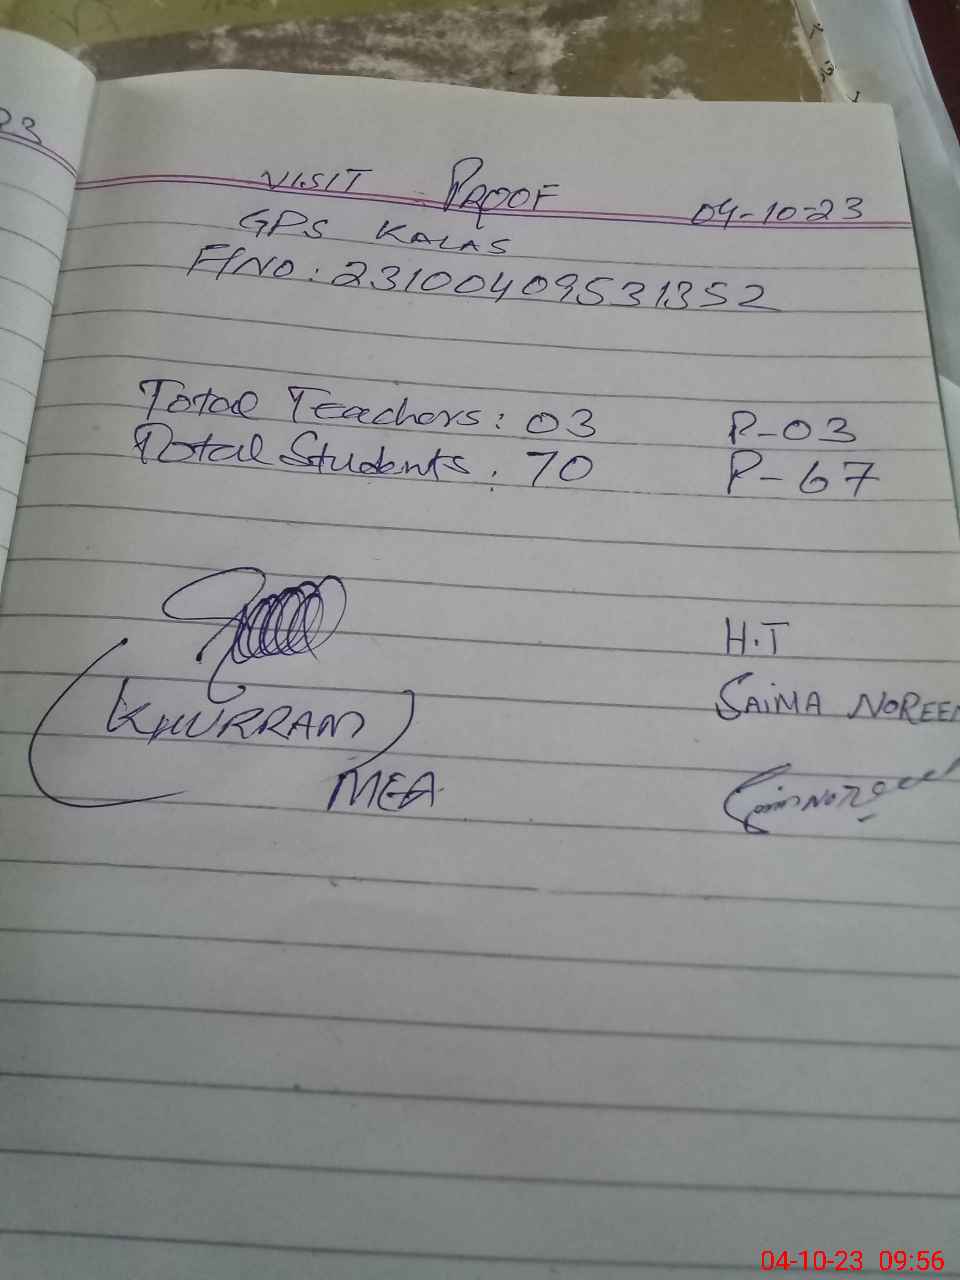 23
VISIT PROOF 04-10-23
GPS KALAS
F/NO: 23100409531352
Total Teachers: 03 P-03
Total Students: 70 P-67
H.T
(KHURRAM) SAIMA NOREEN
MEA
04-10-23 09:56